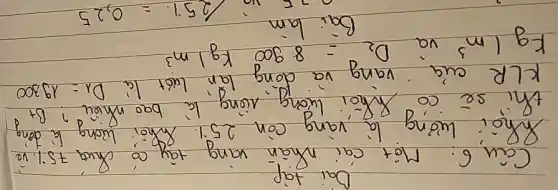 Bài tập
Câu 6: Một cái nhẫn vàng tây có chứa 75% về
khối lượng là vàng còn 25% khối lượng là đồng
thì sẽ có khối lượng riêng là bao nhiêu? Bt
KLR của vàng và đồng lần lượt là D1 = 19300
Kg/m³ và D2 = 8900 Kg/m³
Bài làm
25% = 0,25